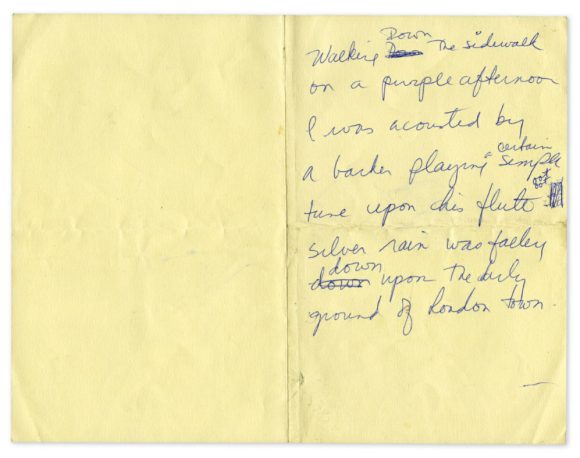 Walking Down the sidewalk
on a purple afternoon
I was acousted by
a barker playing a certain simple
tune upon his flute
silver rain was falley
down upon the dirly
ground of London town.